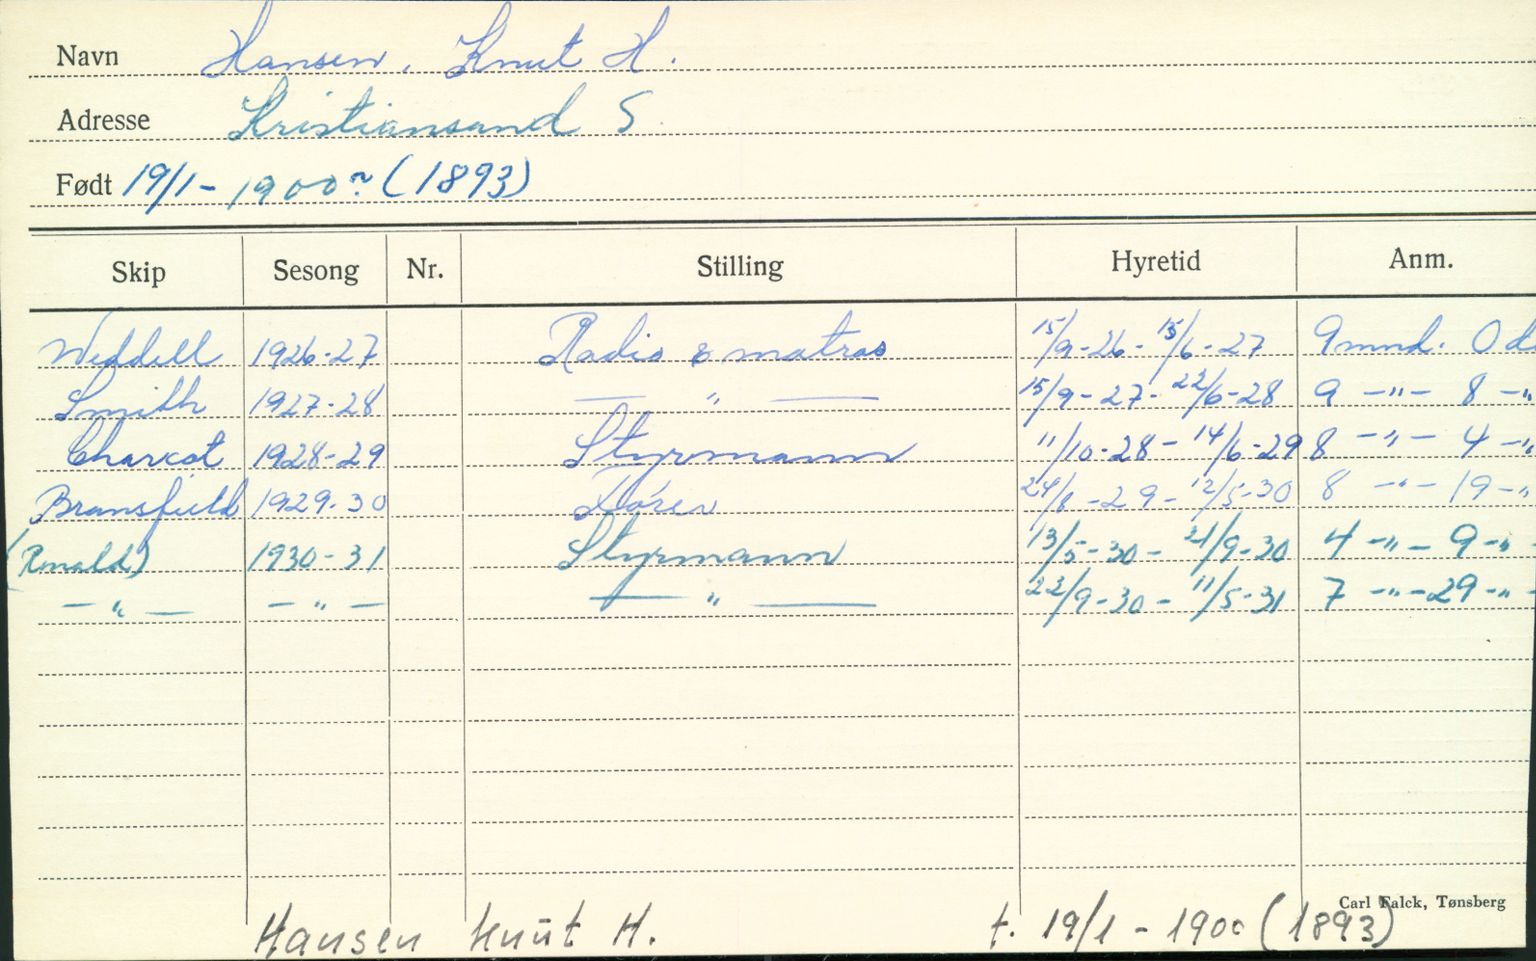 Navn Hansen, Knut H.
Adresse Kristiansand S
Født 19/1 - 1900? (1893)
Skip Sesong Nr. Stilling Hyretid Anm.
Weddell 1926-27 Radio & matros 15/9-26 - 15/6-27 9 mnd. 0 d
Smith 1927-28 — " — 15/9-27 - 22/6-28 9 —"— 8 —"
Charcot 1928-29 Styrmann 11/10-28 - 14/6-29 8 —"— 4 —"
Bransfield 1929-30 24/8-29 - 12/5-30 8 —"— 19 —"
(Ronald) 1930-31 Styrmann 13/5-30 - 21/9-30 4 —"— 9 —"—
—"— —"— — " — 22/9-30 - 11/5-31 7 —"— 29 —"—
Carl Falck, Tønsberg
Hansen Knut H. f. 19/1 - 1900 (1893)